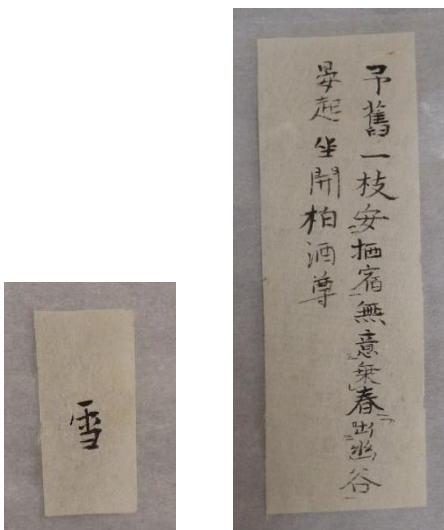 予舊一枝安栖宿無意乗春出幽谷
晏起坐開柏酒尊
雪